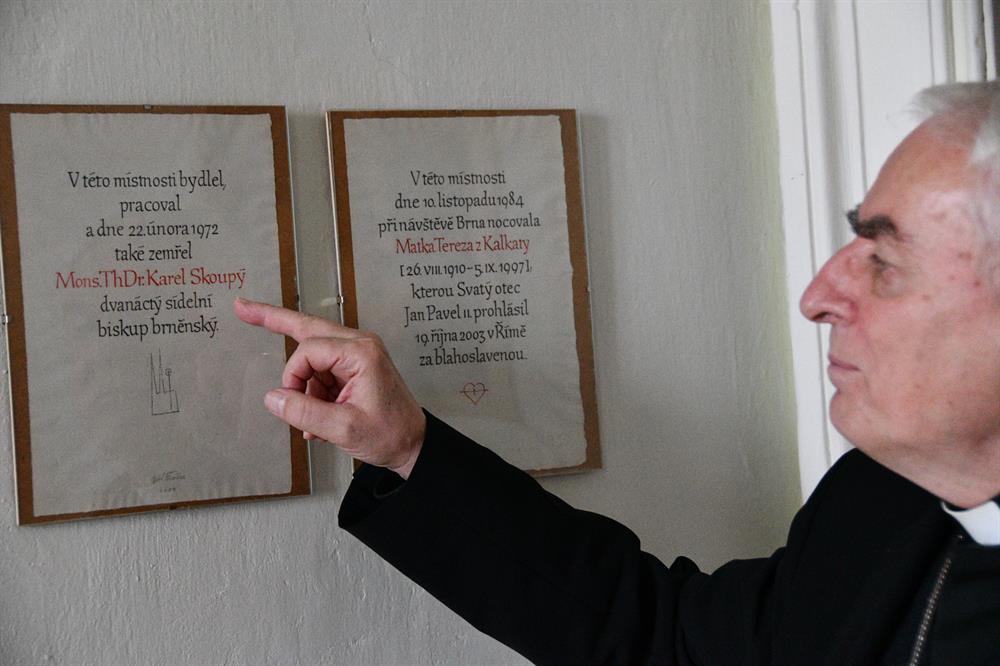 V této místnosti bydlel,
pracoval
a dne 22. února 1972
také zemřel
Mons. ThDr. Karel Skoupý
dvanáctý sídelní
biskup brněnský.
V této místnosti
dne 10. listopadu 1984
při návštěvě Brna nocovala
Matka Tereza z Kalkaty
[26. VIII. 1910 – 5. IX. 1997],
kterou Svatý otec
Jan Pavel II. prohlásil
19. října 2003 v Římě
za blahoslavenou.